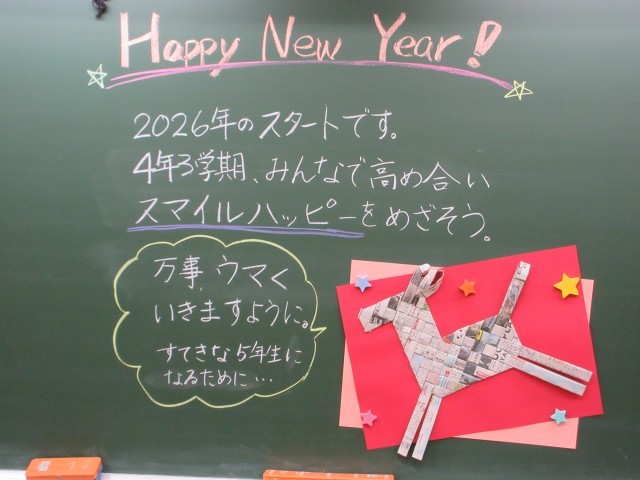 Happy New Year!
2026年のスタートです。
4年3学期、みんなで高め合い
スマイルハッピーをめざそう。
万事、ウマく
いきますように。
すてきな5年生に
なるために…